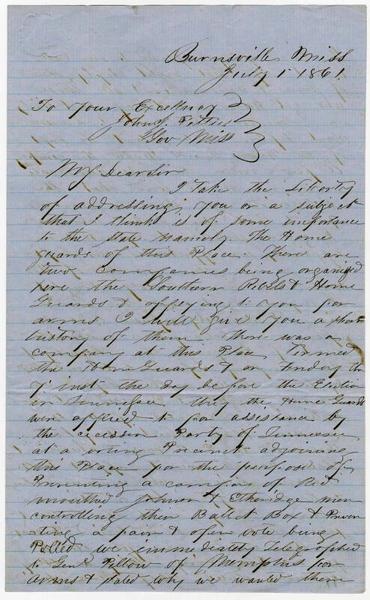 Burnsville Miss
July 1st 1861
To Your Excellency
John J. Pettus
Gov Miss
My Dear Sir
I take the Liberty
of addressing you on a subject
that I think is of some importance
to the state namely The Home
Guards of this Place. There are
two companies being organized
here the Southern Rebels & Home
Guards & applying to you for
arms I will give you a short
history of them there was a
company at this Place formed
the Home Guards & on
inst the day before the Election
in Tennessee they the Home Guards
were applied to for assistance by
the secession Party of Tennessee
at a voting Precinct adjoining
this Place for the purpose of
Preventing a company of
Johnson & Etheridge men
controlling their Ballot Box & Preven
ting a fair & open vote being
Polled we immediately Telegraphed
to Genl Pillow of Memphis for
arms & stated why we wanted them